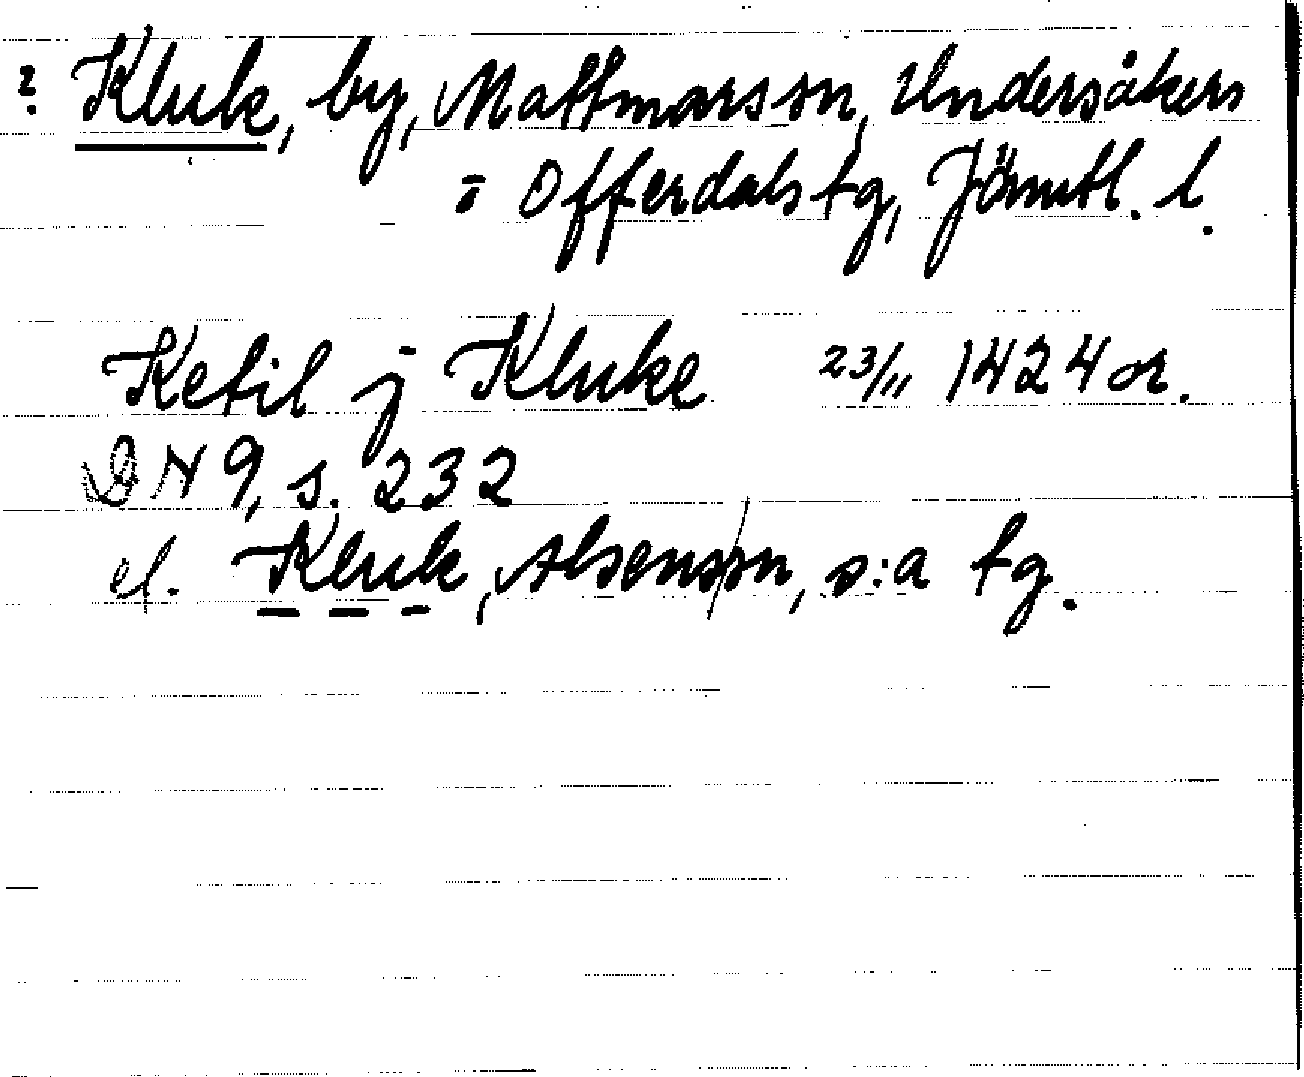 ? Kluk, by, Mattmars sn, Undersåkers
o Offerdals tg, Jämtl. l.
Ketil j Kluke 23/11 1424 or.
DN 9, s. 232
el. Kluk, Alsens sn, s:a tg.